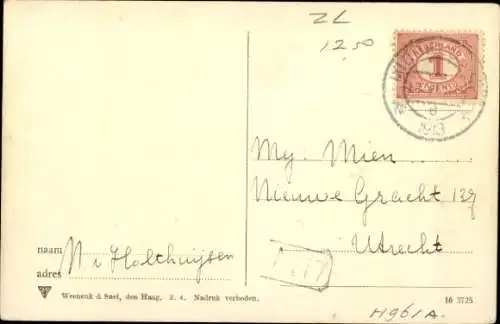 ZL
12.50
NEDERLAND
1
CENT
My. Mien
Nieuwe Gracht 127
Utrecht
naam N v Holthuijsen
adres
Weenenk & Snel, den Haag. Z. 4. Nadruk verboden.
16 3725
H961A.